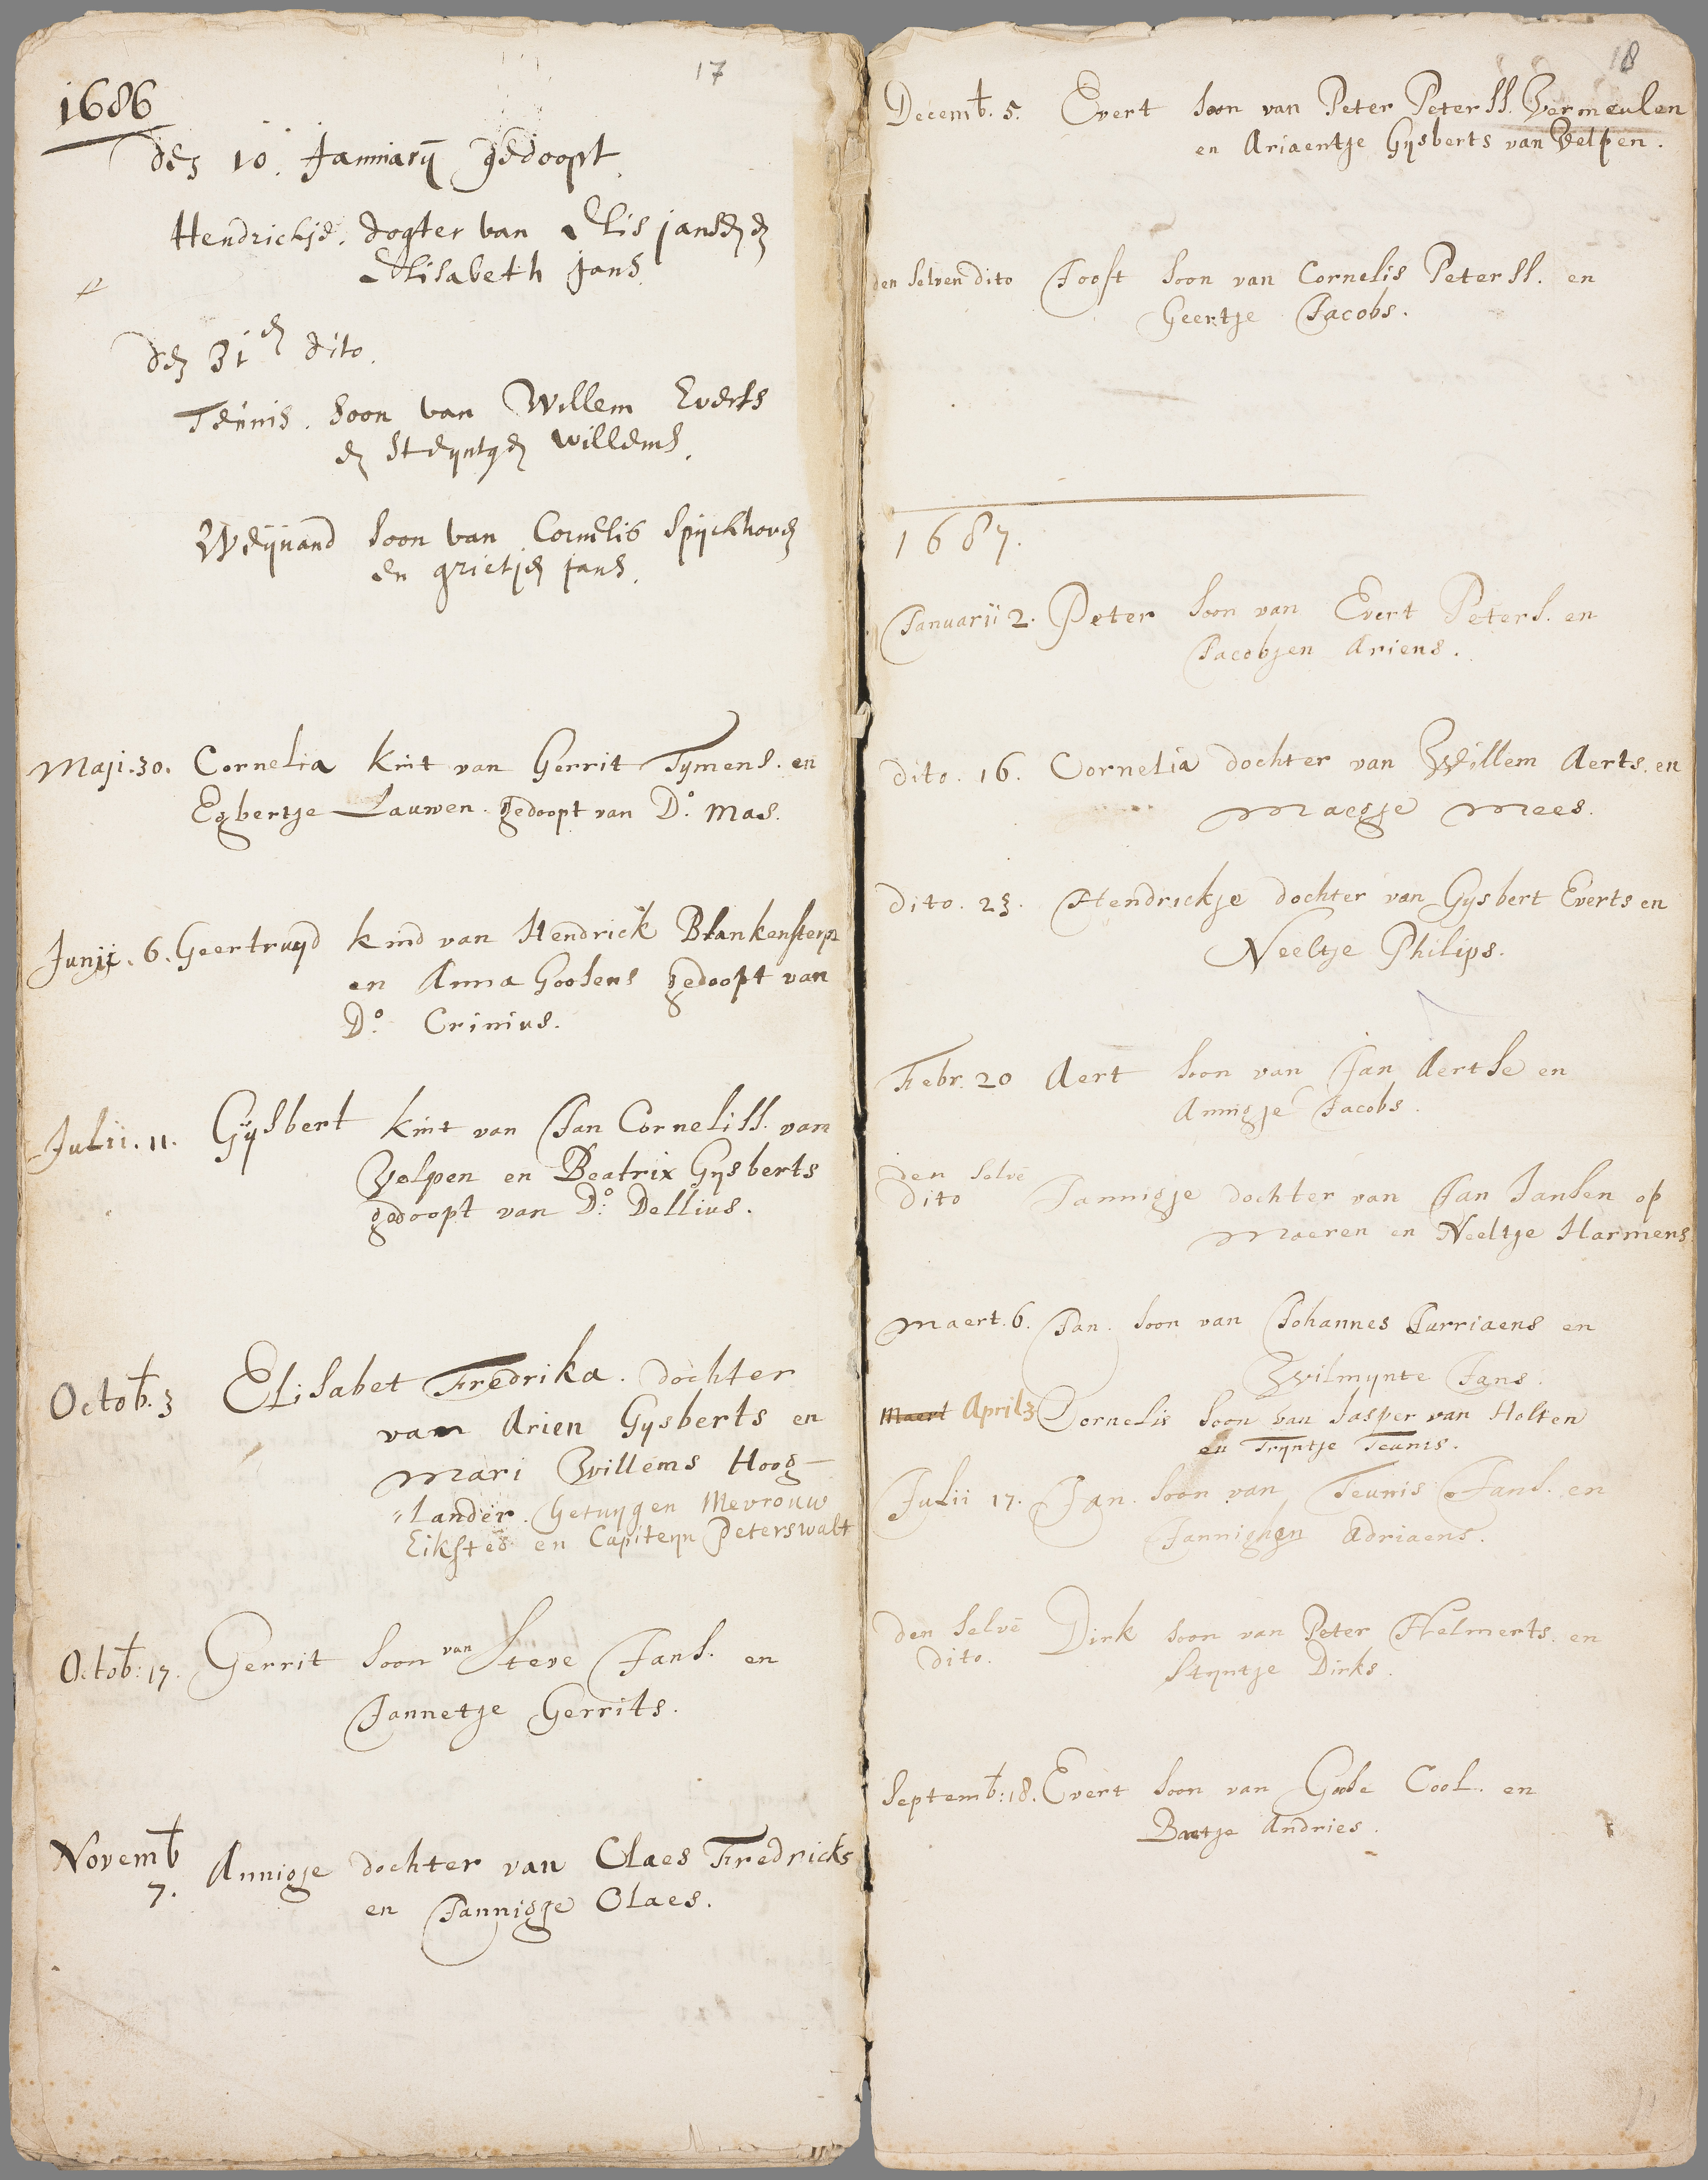 17
1686
den 10. Januarij gedoopt.
Hendrickje. dogter van Elis jansen en
Elisabeth Jans.
den 31en dito.
Teunis. soon van Willem Everts
en Steyntgen willems.
Weijnand soon van Cornelis Spijckhoven
en grietjen Jans.
Maji. 30. Cornelia kint van Gerrit Tymens. en
Egbertje Lauwen. gedoopt van Do. Mas.
Junii. 6. Geertruyd kind van Hendrick Blankensteyn
en Anna Goosens gedoopt van
Do. Crinius.
Julii. 11. Gijsbert kint van Jan Corneliss. van
Velpen en Beatrix Gysberts
gedoopt van Do. Dellius.
Octob. 3 Elisabet Fredrika. dochter
van Arien Gysberts en
Mari Willems Hoog-
"Lander. Getuygen Mevrouw
Eiksted en Capiteyn Peterswalt
Octob: 17. Gerrit soon van Steve Jans. en
Jannetje Gerrits.
Novemb
7. Annigje dochter van Claes Fredricks
en Jannigje Claes.
18
Decemb. 5. Evert soon van Peter Peterss. Vermeulen
en Ariaentje Gysberts van Velpen.
den selven dito Joost soon van Cornelis Peterss. en
Geertje Jacobs.
1687.
Januarii 2. Peter soon van Evert Peters. en
Jacobjen Ariens.
dito. 16. Cornelia dochter van Willem Aerts. en
Maegje Mees.
dito. 23. Hendrickje dochter van Gysbert Everts en
Neeltje Philips.
Febr. 20 Aert soon van Jan Aertse en
Annigje Jacobs.
den selve
dito Jannigje dochter van Jan Jansen op
Maeren en Neeltje Harmens
Maert. 6. Jan. soon van Johannes Jurriaens en
Wilmynte Jans.
Maert April 3 Cornelis soon van Jasper van Holten
en Tryntje Teunis.
Julii 17. Jan. soon van Teunis Jans. en
Jannighen Adriaens.
den selve
dito. Dirk soon van Peter Helmerts. en
Styntje Dirks.
Septemb: 18. Evert soon van Gose Cool. en
Baetje Andries.